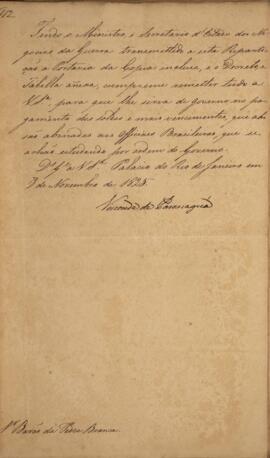 Tendo o Ministro, e Secretario d'Estado dos Ne-
gocios da Guerra transmittido a esta Reparti-
ção a Portaria da Copia inclusa, e o Decreto, e
Tabella annexa, cumpre-me remetter tudo a
V. Sª. para que lhe sirva de governo no pa-
gamento dos soldos e mais vencimentos, que de-
vem abonados aos Officiaes Brasileiros, que se
achão estudando por ordem do Governo.
Ds. Gde. a V. Sª. Palacio do Rio de Janeiro em
9 de Novembro de 1825
Visconde de Paranaguá
Sr. Barão da Pedra Branca.